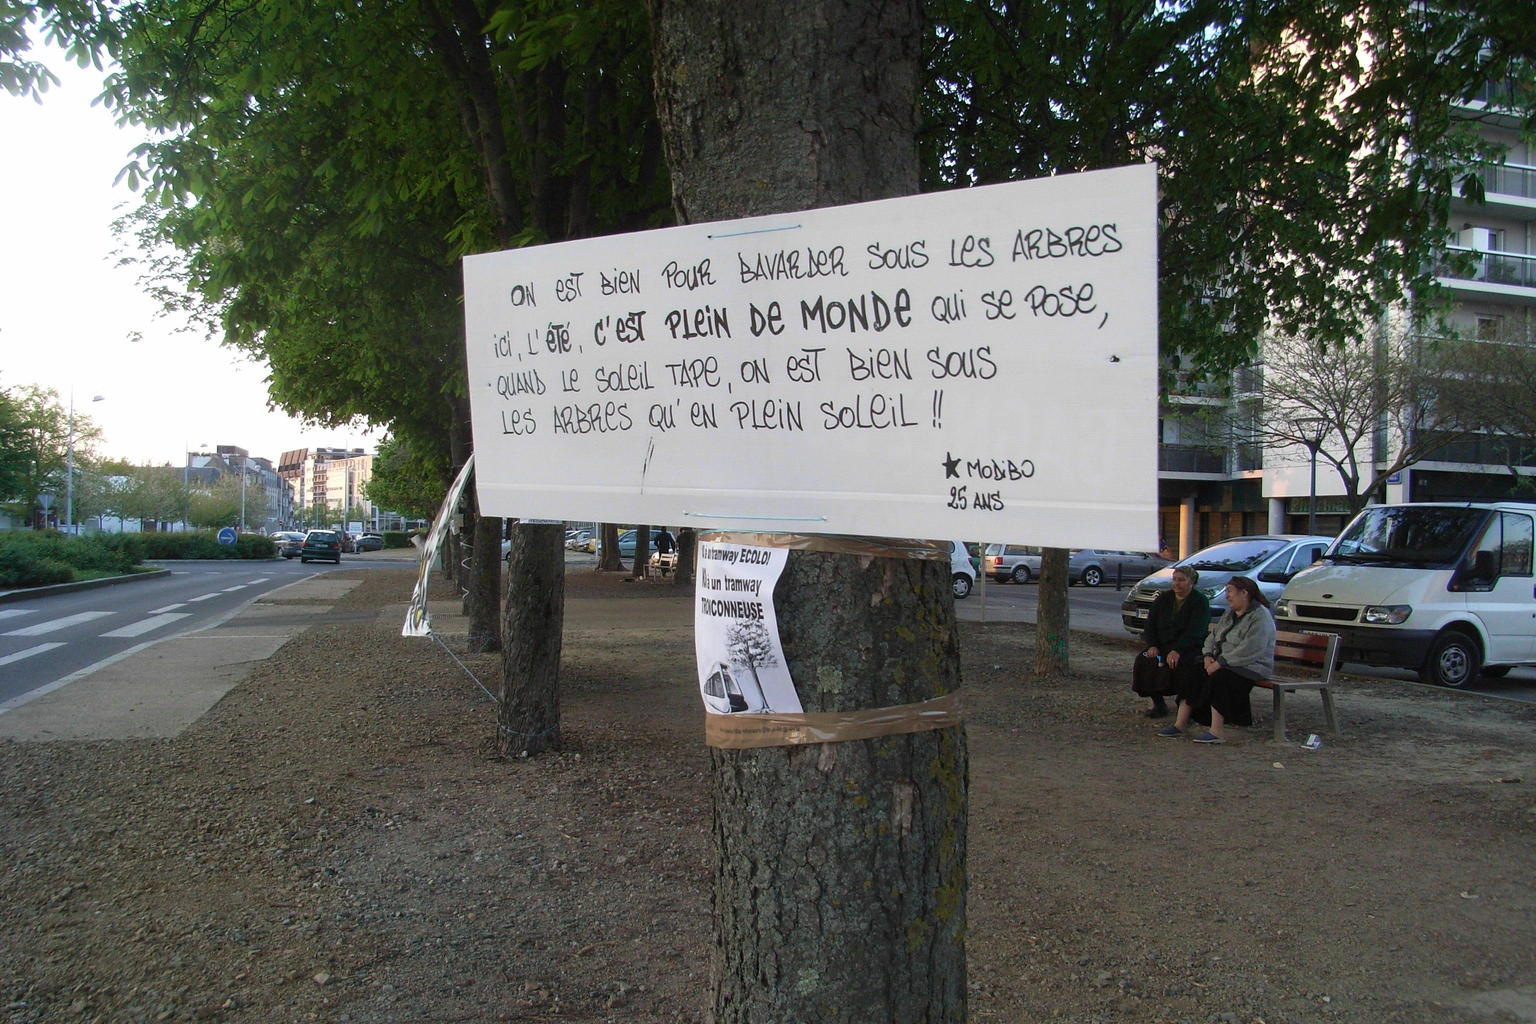 ON EST BIEN POUR BAVARDER SOUS LES ARBRES
ICI, L'ÉTÉ, C'EST PLEIN DE MONDE QUI SE POSE,
QUAND LE SOLEIL TAPE, ON EST BIEN SOUS
LES ARBRES QU'EN PLEIN SOLEIL !!
★ MODIBO
25 ANS
tramway ECOLO!
à un tramway
TRONCONNEUSE